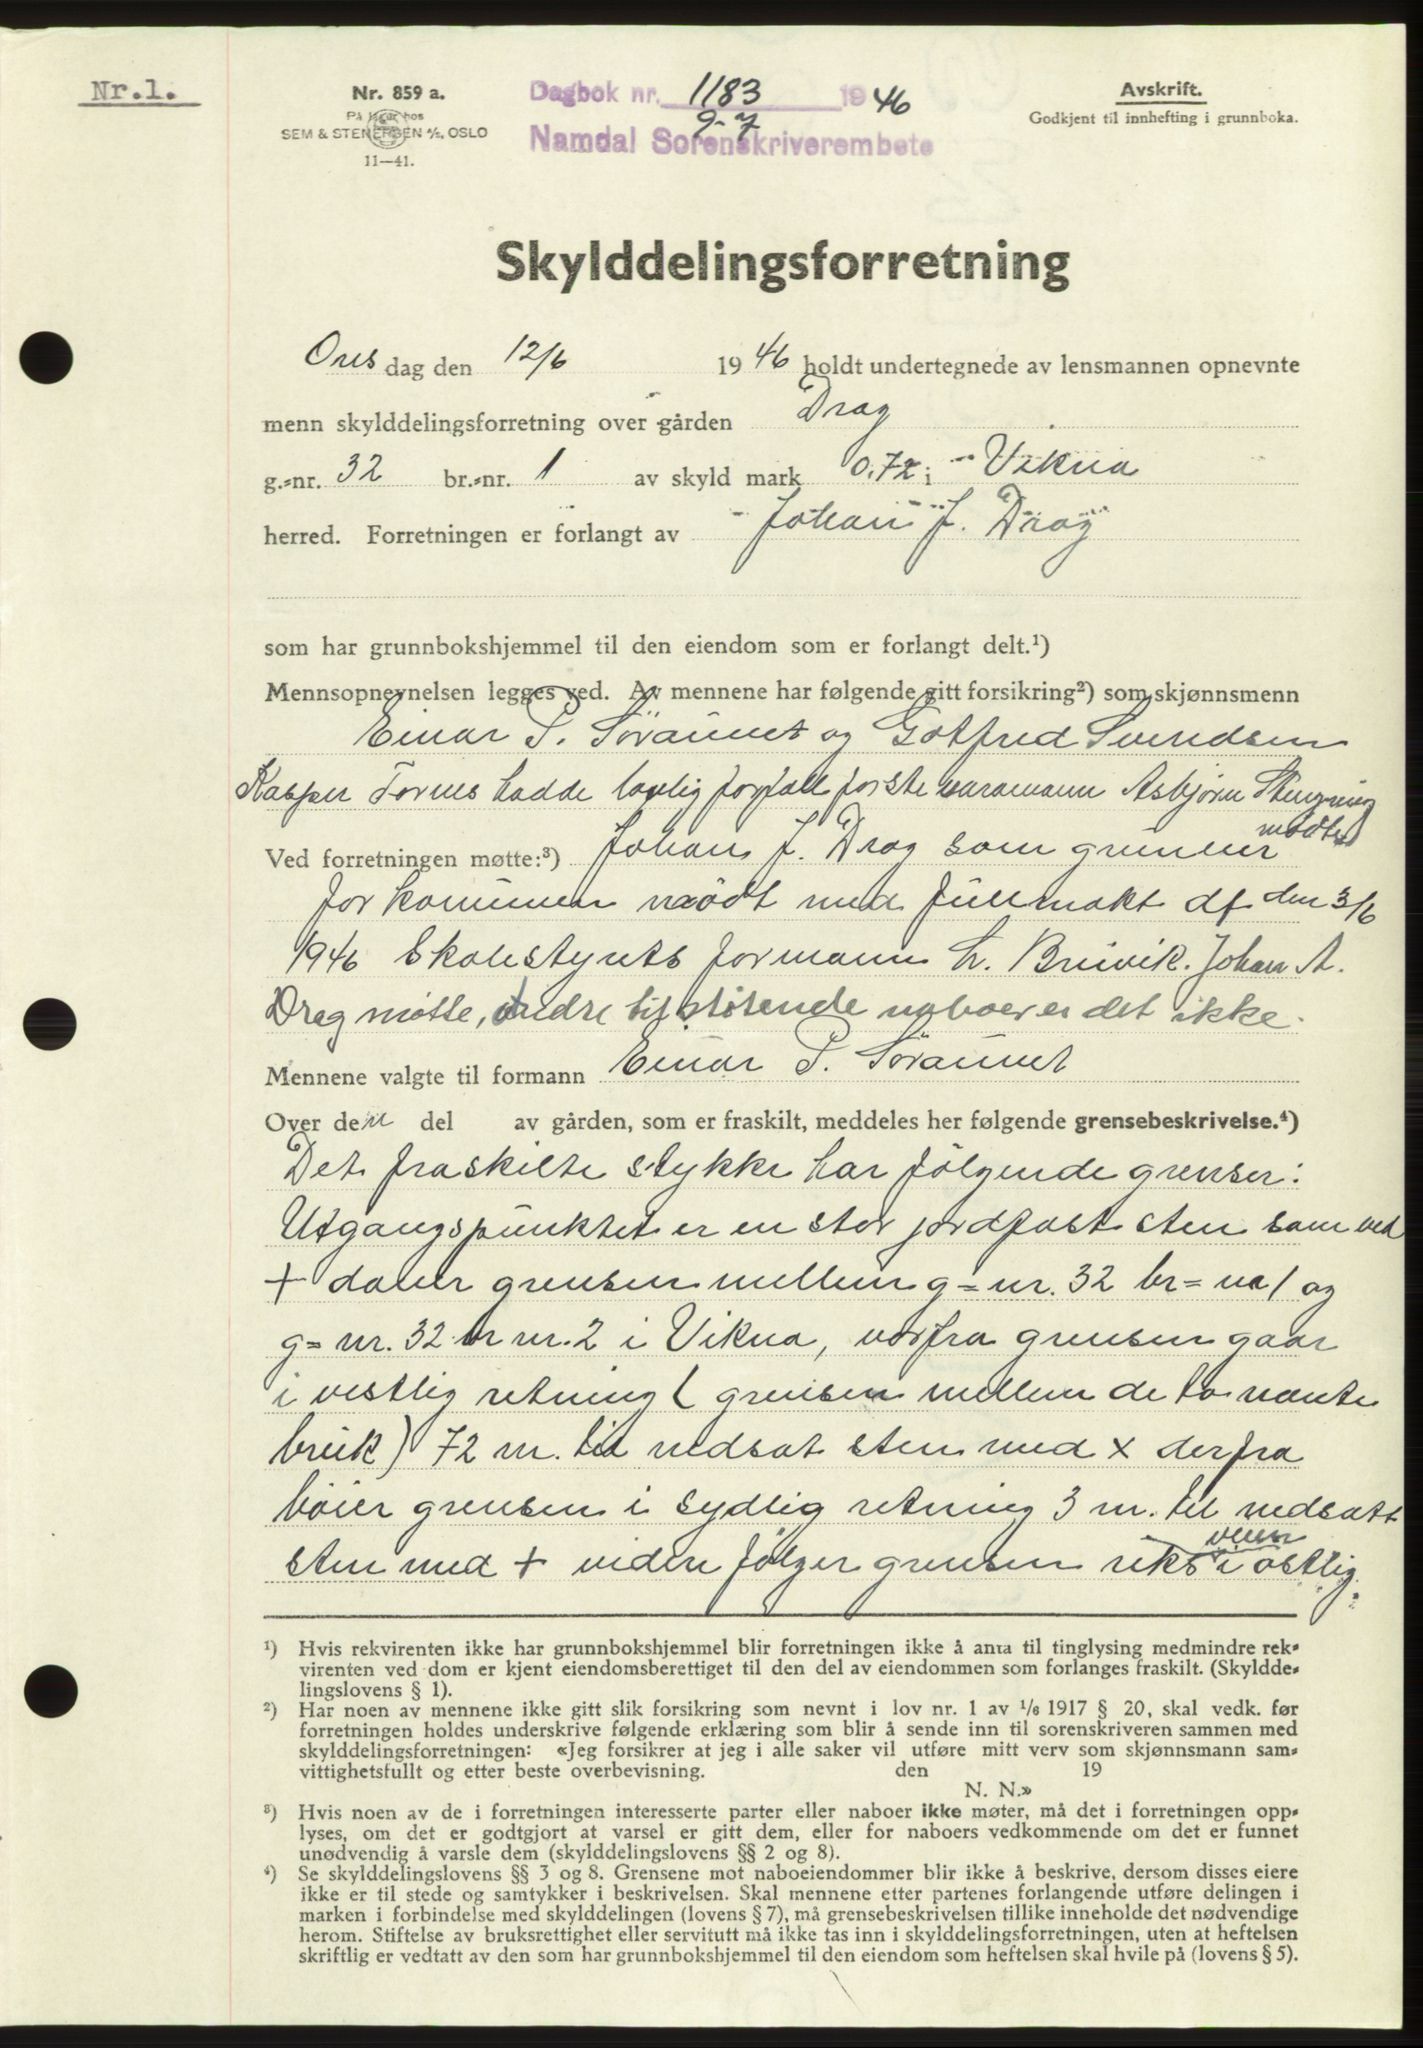 Nr.1.
Nr. 859 a.
På lager hos
SEM & STENERSEN A/S, OSLO
11—41.
Dagbok nr. 1183 1946
9-7
Namdal Sorenskriverembete
Avskrift.
Godkjent til innhefting i grunnboka.
Skylddelingsforretning
Onsdag den 12/6 1946 holdt undertegnede av lensmannen opnevnte
menn skylddelingsforretning over gården Drag
g.-nr. 32 br.-nr. 1 av skyld mark 0.72 i Vikna
herred. Forretningen er forlangt av Johan J. Drag
som har grunnbokshjemmel til den eiendom som er forlangt delt.¹)
Mennsopnevnelsen legges ved. Av mennene har følgende gitt forsikring²) som skjønnsmenn
Einar P. Söraunet og Gotfred Svendsen
Kasper Fornes hadde lovlig forfall første varamann Asbjørn
mødte
Ved forretningen møtte:³) Johan J. Drag som grunneier
for kommunen mødt med fullmakt af den 3/6
1946 Skolestyrets formann H. Breivik. Johan A.
Drag møtte, andre tilstøtende naboer er det ikke.
Mennene valgte til formann Einar P. Söraunet
Over den del av gården, som er fraskilt, meddeles her følgende grensebeskrivelse.⁴)
Det fraskilte stykke har følgende grenser:
Utgangspunktet er en stor jordfast sten som ved
+ daner grensen mellem g=nr. 32 br=nr 1 og
g=nr. 32 br nr. 2 i Vikna, vorfra grensen gaar
i vestlig retning ( grensen mellem de to nævnte
bruk) 72 m. til nedsat sten med x derfra
böier grensen i sydlig retning 3 m. til nedsatt
sten med + videre følger grensen riks veien i østlig
¹) Hvis rekvirenten ikke har grunnbokshjemmel blir forretningen ikke å anta til tinglysing medmindre rek-
virenten ved dom er kjent eiendomsberettiget til den del av eiendommen som forlanges fraskilt. (Skyldde-
lingslovens § 1).
²) Har noen av mennene ikke gitt slik forsikring som nevnt i lov nr. 1 av 1/6 1917 § 20, skal vedk. før
forretningen holdes underskrive følgende erklæring som blir å sende inn til sorenskriveren sammen med
skylddelingsforretningen: «Jeg forsikrer at jeg i alle saker vil utføre mitt verv som skjønnsmann sam-
vittighetsfullt og etter beste overbevisning. den 19
N. N.»
³) Hvis noen av de i forretningen interesserte parter eller naboer ikke møter, må det i forretningen opp-
lyses, om det er godtgjort at varsel er gitt dem, eller for naboers vedkommende om det er funnet
unødvendig å varsle dem (skylddelingslovens §§ 2 og 8).
⁴) Se skylddelingslovens §§ 3 og 8. Grensene mot naboeiendommer blir ikke å beskrive, dersom disses eiere
ikke er til stede og samtykker i beskrivelsen. Skal mennene etter partenes forlangende utføre delingen i
marken i forbindelse med skylddelingen (lovens § 7), må grensebeskrivelsen tillike inneholde det nødvendige
herom. Stiftelse av bruksrettighet eller servitutt må ikke tas inn i skylddelingsforretningen, uten at heftelsen
skriftlig er vedtatt av den som har grunnbokshjemmel til den eiendom som heftelsen skal hvile på (lovens § 5).